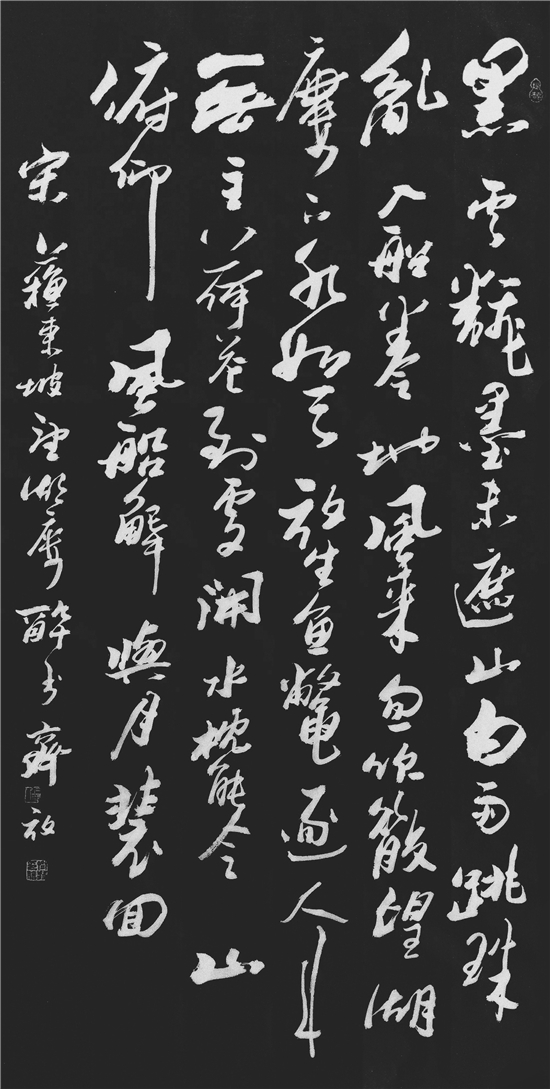 黑雲翻墨未遮山白雨跳珠
亂入船卷地風来忽吹散望湖
樓下水如天放生魚鱉逐人來
無主荷花到處開水枕能令山
俯仰風船解與月裴回
宋蘇東坡望湖樓醉書齊放